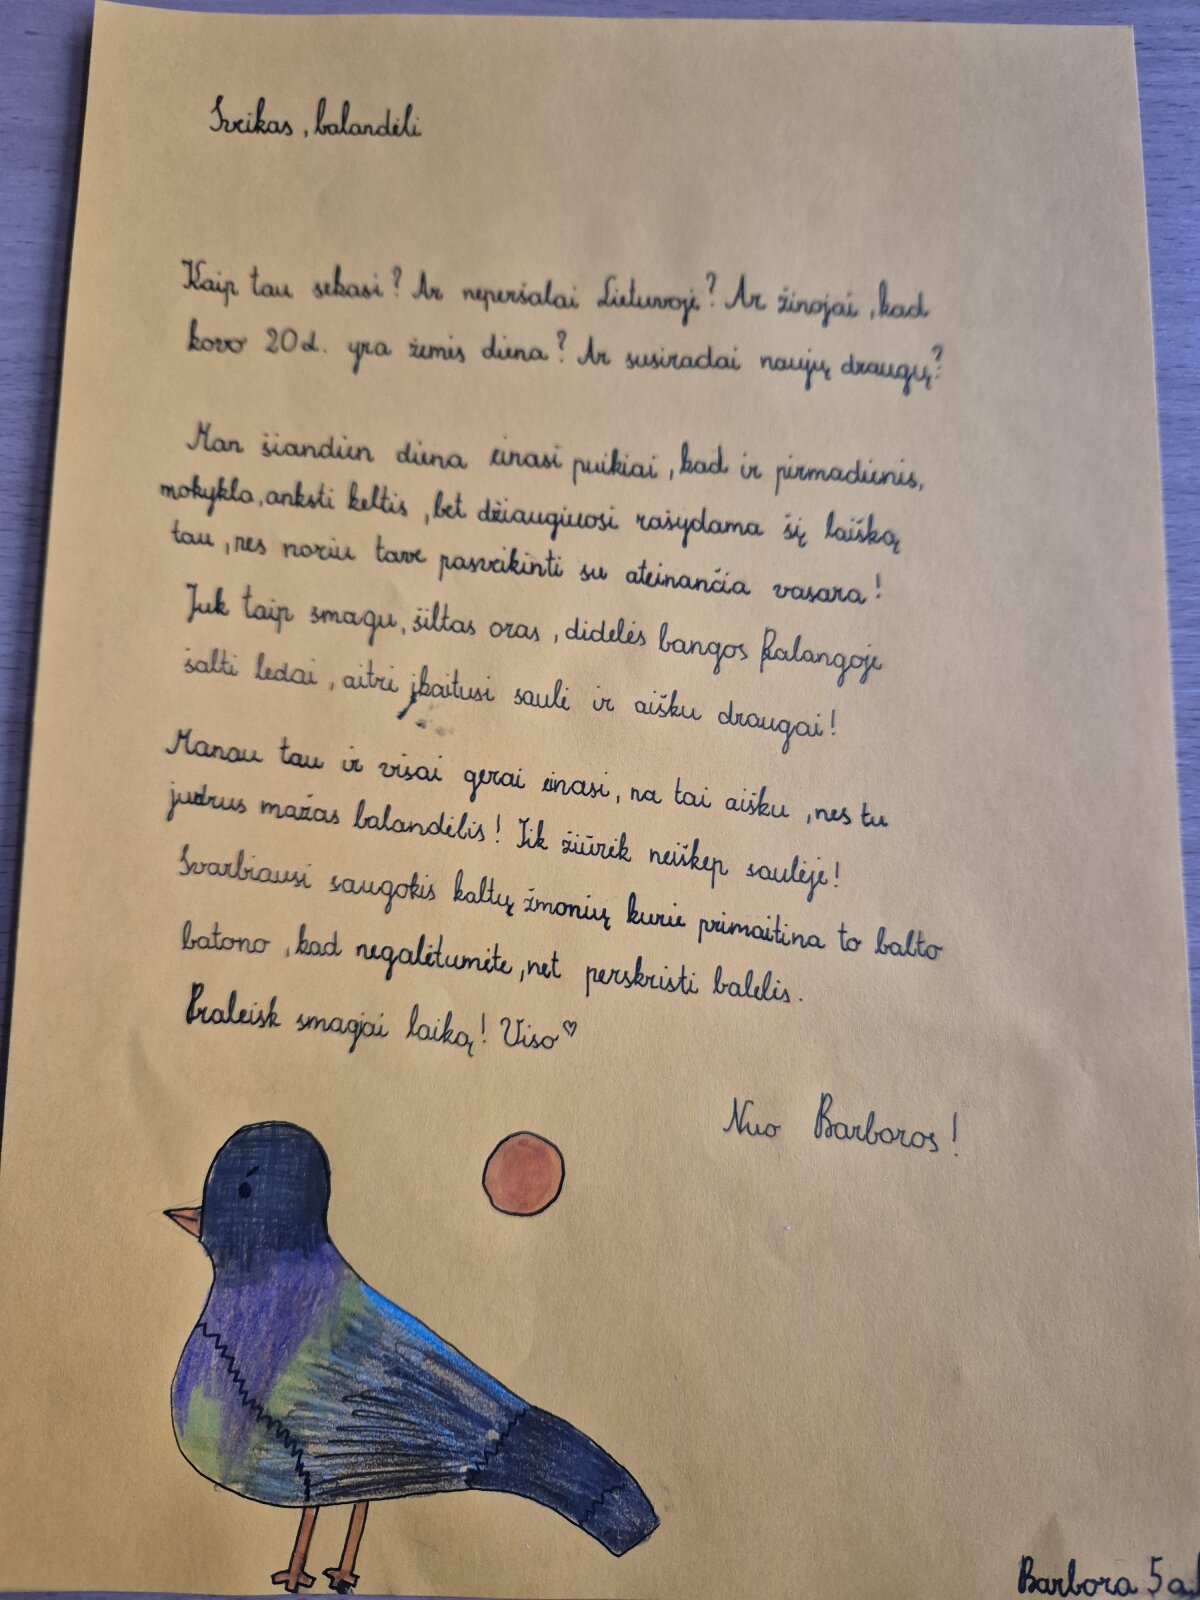 Sveikas, balandėli
Kaip tau sekasi? Ar neperšalai Lietuvoje? Ar žinojai, kad
kovo 20d. yra žemės diena? Ar susiradai naujų draugų?
Man šiandien diena einasi puikiai, kad ir pirmadienis,
mokykla, anksti keltis, bet džiaugiuosi rašydama šį laišką
tau, nes noriu tave pasveikinti su ateinančia vasara!
Juk taip smagu, šiltas oras, didelės bangos Palangoje
šalti ledai, aitri įkaitusi saulė ir aišku draugai!
Manau tau ir visai gerai einasi, na tai aišku, nes tu
judrus mažas balandėlis! Tik žiūrėk neiškep saulėje!
Svarbiausi saugokis kaltų žmonių kurie primaitina to balto
batono, kad negalėtumėte, net perskristi balėlės.
Praleisk smagjai laiką! Viso♡
Nuo Barboros!
Barbora 5a